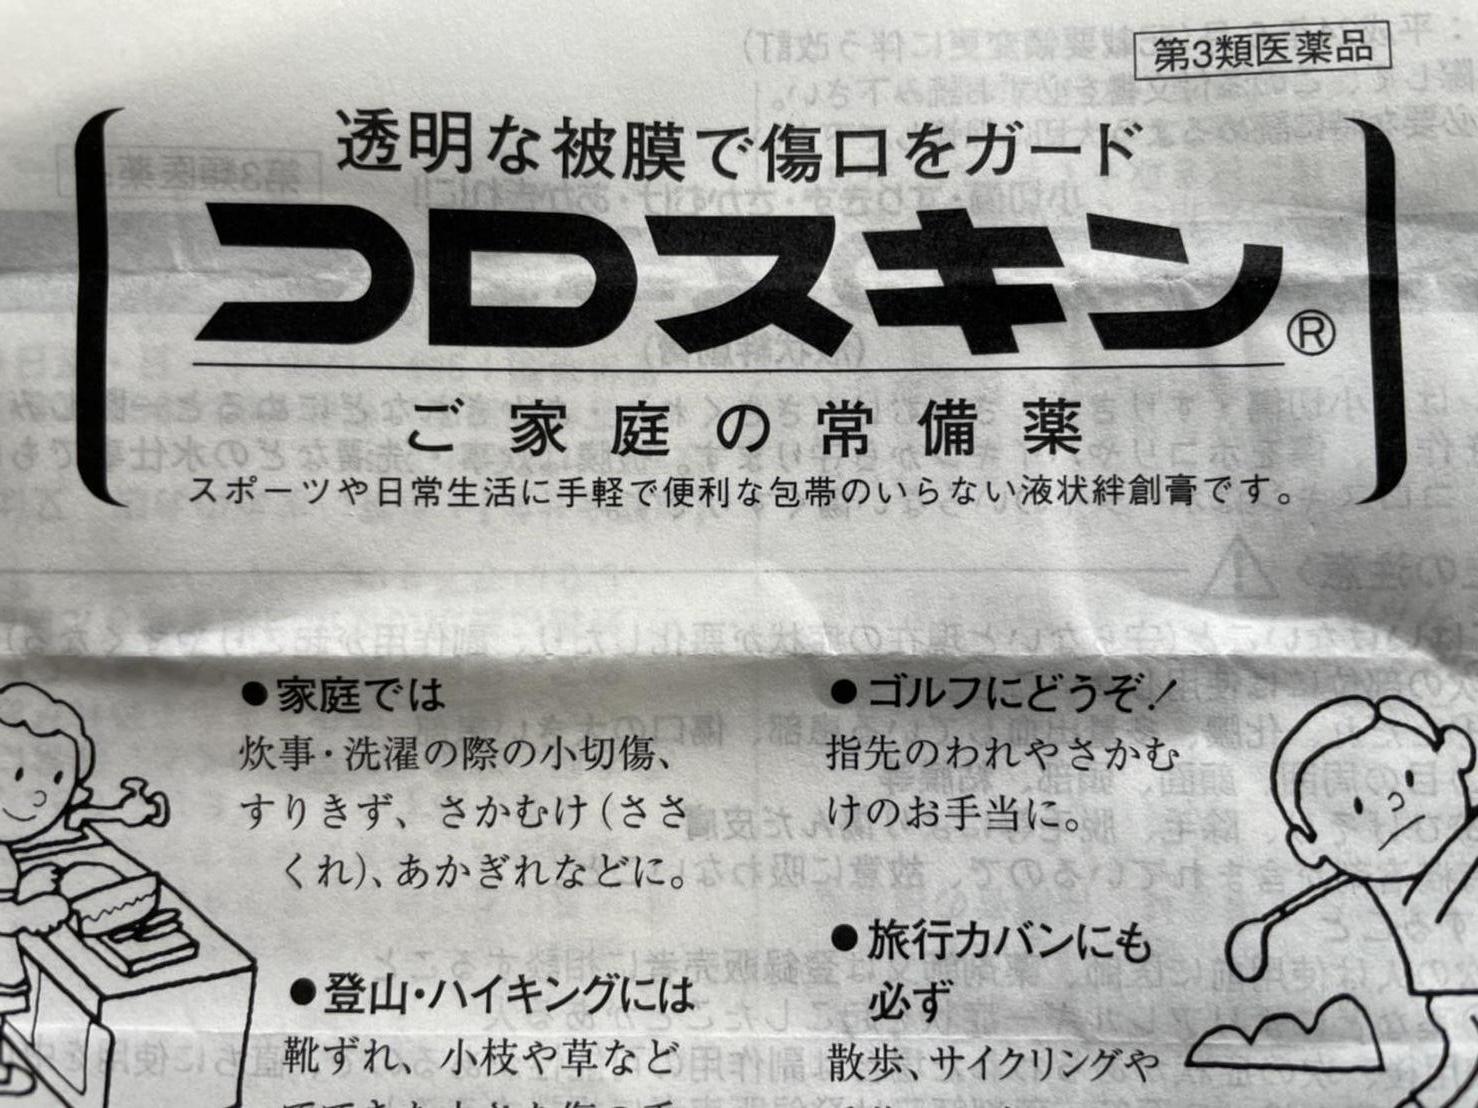 第3類医薬品
透明な被膜で傷口をガード
コロスキン®
ご家庭の常備薬
スポーツや日常生活に手軽で便利な包帯のいらない液状絆創膏です。
●家庭では
炊事・洗濯の際の小切傷、
すりきず、さかむけ(ささ
くれ)、あかぎれなどに。
●登山・ハイキングには
靴ずれ、小枝や草など
●ゴルフにどうぞ!
指先のわれやさかむ
けのお手当に。
●旅行カバンにも
必ず
散歩、サイクリングや